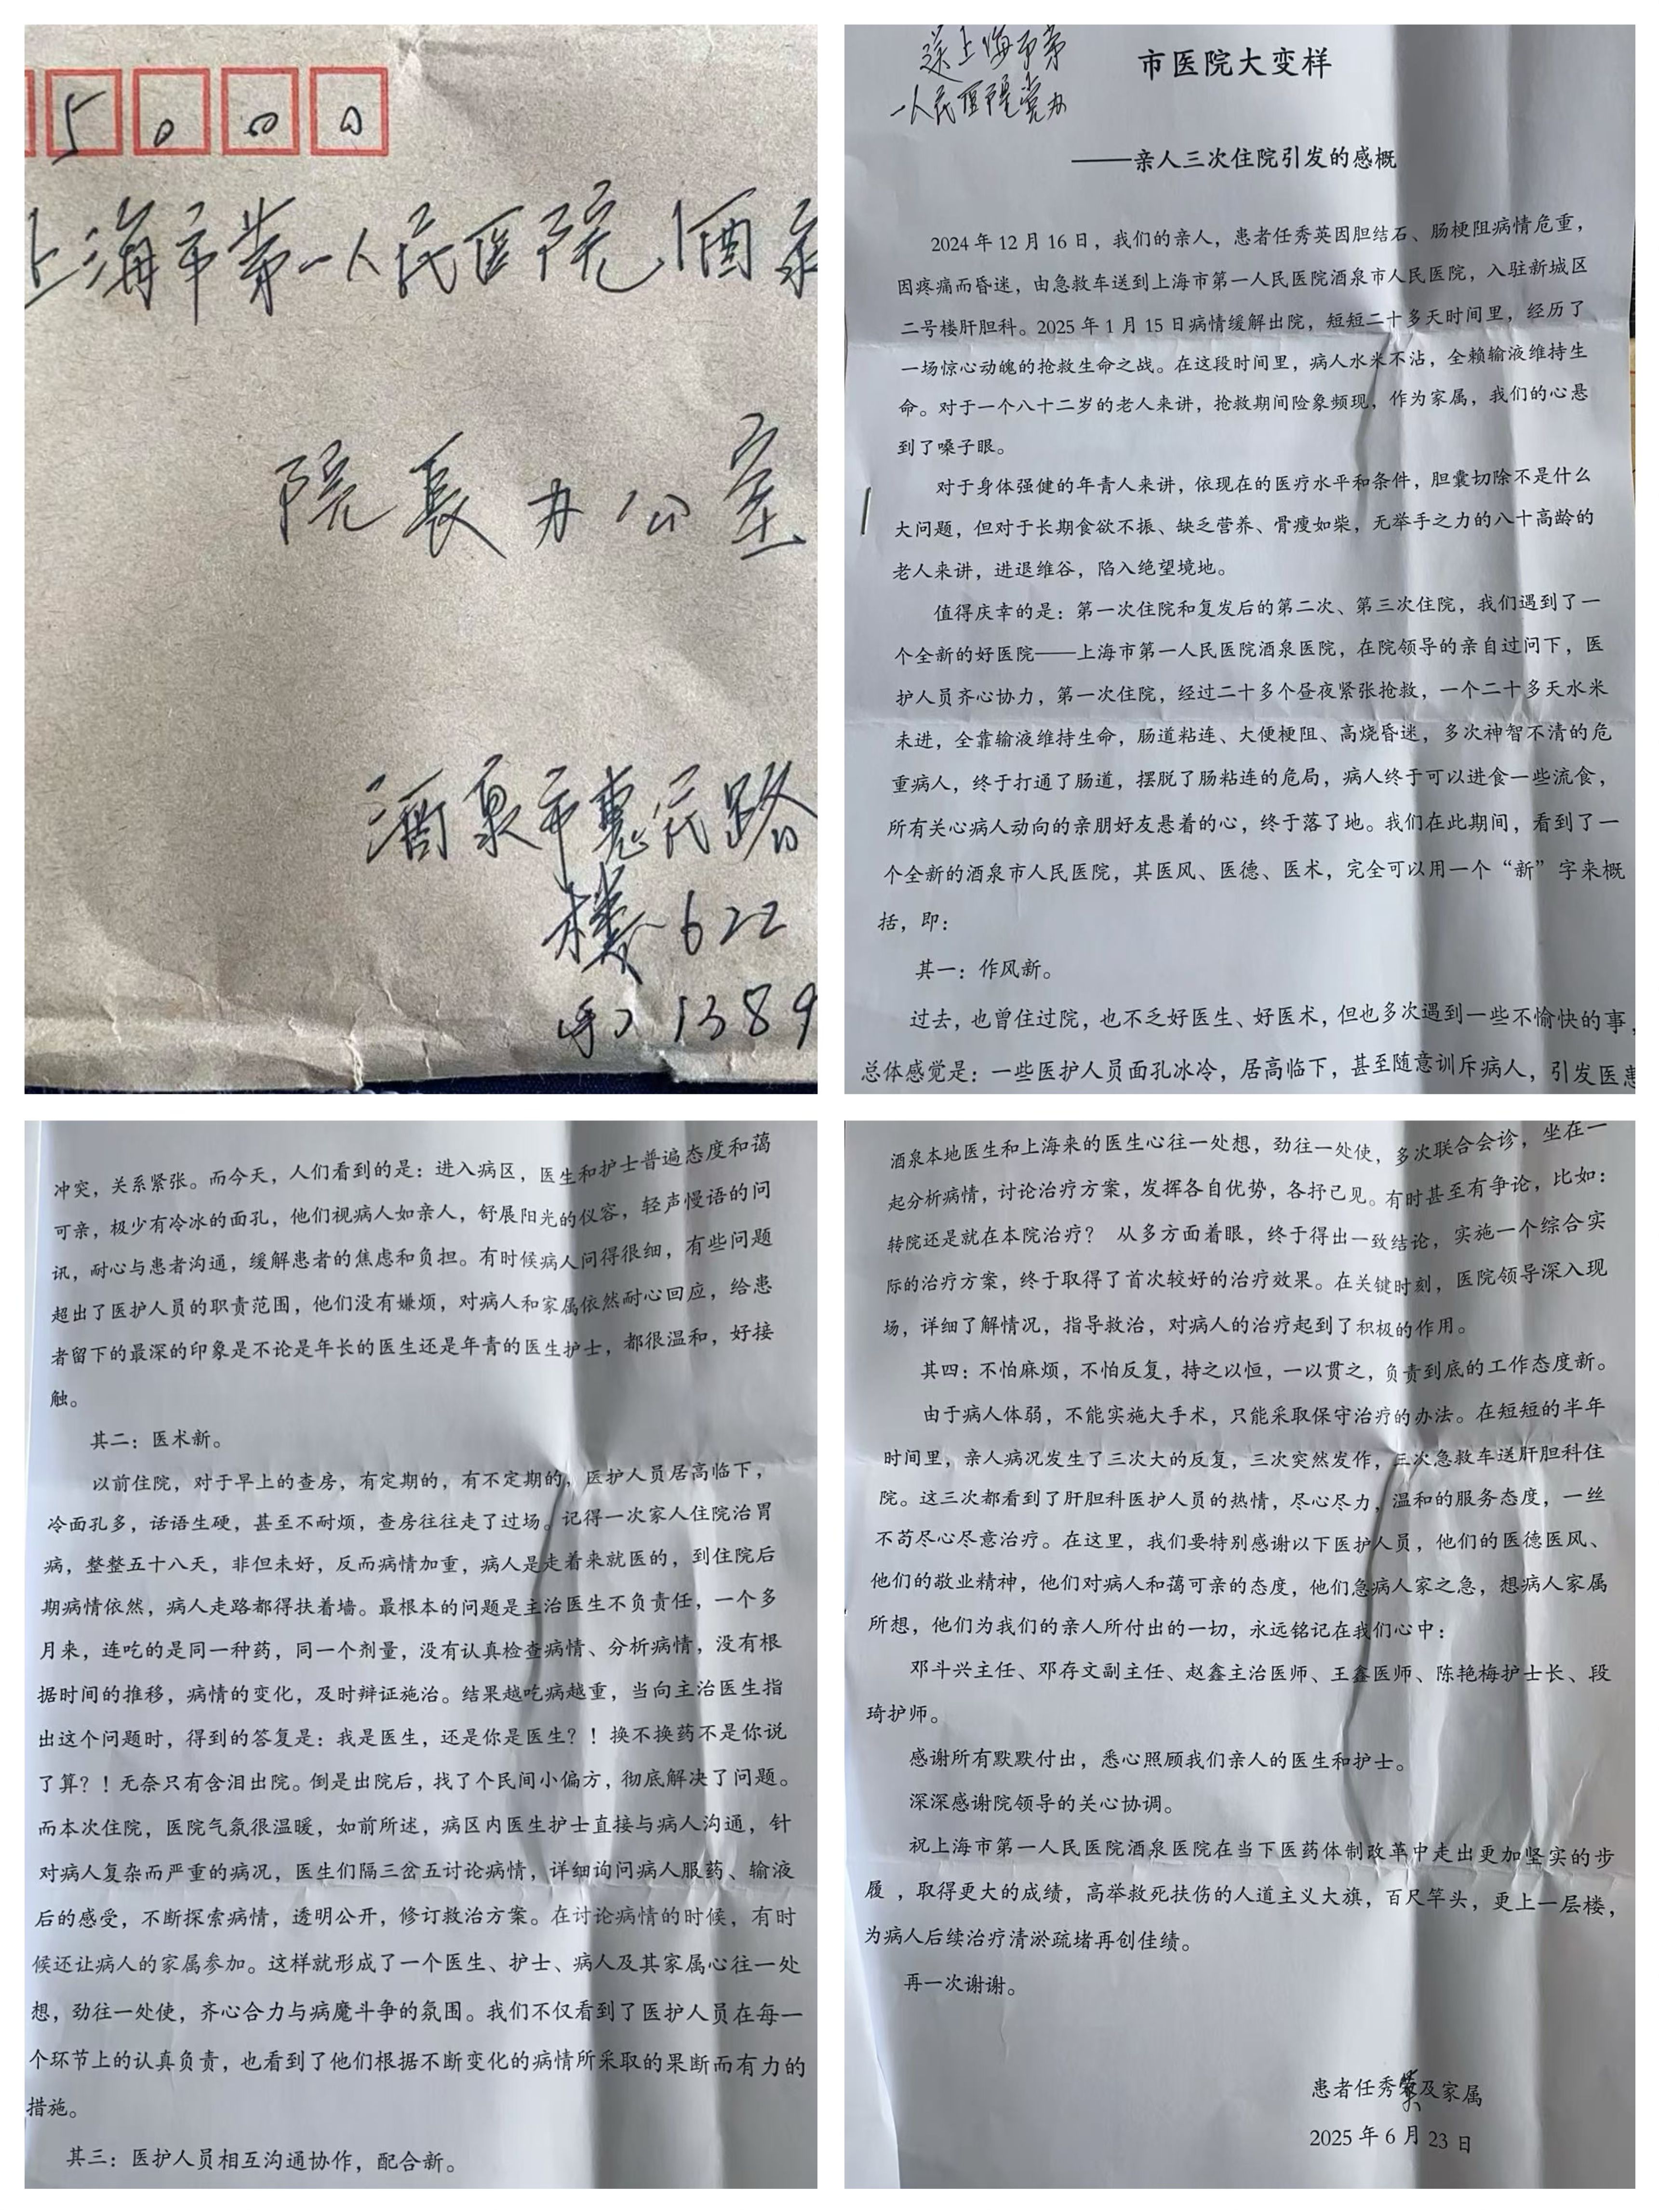 5000
上海市第一人民医院酒泉
院长办公室
酒泉市惠民路
楼622
手 1389
送上海市第
一人民医院党办
市医院大变样
——亲人三次住院引发的感概
2024年12月16日，我们的亲人，患者任秀英因胆结石、肠梗阻病情危重，
因疼痛而昏迷，由急救车送到上海市第一人民医院酒泉市人民医院，入驻新城区
二号楼肝胆科。2025年1月15日病情缓解出院，短短二十多天时间里，经历了
一场惊心动魄的抢救生命之战。在这段时间里，病人水米不沾，全赖输液维持生
命。对于一个八十二岁的老人来讲，抢救期间险象频现，作为家属，我们的心悬
到了嗓子眼。
对于身体强健的年青人来讲，依现在的医疗水平和条件，胆囊切除不是什么
大问题，但对于长期食欲不振、缺乏营养、骨瘦如柴，无举手之力的八十高龄的
老人来讲，进退维谷，陷入绝望境地。
值得庆幸的是：第一次住院和复发后的第二次、第三次住院，我们遇到了一
个全新的好医院——上海市第一人民医院酒泉医院，在院领导的亲自过问下，医
护人员齐心协力，第一次住院，经过二十多个昼夜紧张抢救，一个二十多天水米
未进，全靠输液维持生命，肠道粘连、大便梗阻、高烧昏迷，多次神智不清的危
重病人，终于打通了肠道，摆脱了肠粘连的危局，病人终于可以进食一些流食，
所有关心病人动向的亲朋好友悬着的心，终于落了地。我们在此期间，看到了一
个全新的酒泉市人民医院，其医风、医德、医术，完全可以用一个“新”字来概
括，即：
其一：作风新。
过去，也曾住过院，也不乏好医生、好医术，但也多次遇到一些不愉快的事，
总体感觉是：一些医护人员面孔冰冷，居高临下，甚至随意训斥病人，引发医患
冲突，关系紧张。而今天，人们看到的是：进入病区，医生和护士普遍态度和蔼
可亲，极少有冷冰的面孔，他们视病人如亲人，舒展阳光的仪容，轻声慢语的问
讯，耐心与患者沟通，缓解患者的焦虑和负担。有时候病人问得很细，有些问题
超出了医护人员的职责范围，他们没有嫌烦，对病人和家属依然耐心回应，给患
者留下的最深的印象是不论是年长的医生还是年青的医生护士，都很温和，好接
触。
其二：医术新。
以前住院，对于早上的查房，有定期的，有不定期的，医护人员居高临下，
冷面孔多，话语生硬，甚至不耐烦，查房往往走了过场。记得一次家人住院治胃
病，整整五十八天，非但未好，反而病情加重，病人是走着来就医的，到住院后
期病情依然，病人走路都得扶着墙。最根本的问题是主治医生不负责任，一个多
月来，连吃的是同一种药，同一个剂量，没有认真检查病情、分析病情，没有根
据时间的推移，病情的变化，及时辩证施治。结果越吃病越重，当向主治医生指
出这个问题时，得到的答复是：我是医生，还是你是医生？！换不换药不是你说
了算？！无奈只有含泪出院。倒是出院后，找了个民间小偏方，彻底解决了问题。
而本次住院，医院气氛很温暖，如前所述，病区内医生护士直接与病人沟通，针
对病人复杂而严重的病况，医生们隔三岔五讨论病情，详细询问病人服药、输液
后的感受，不断探索病情，透明公开，修订救治方案。在讨论病情的时候，有时
候还让病人的家属参加。这样就形成了一个医生、护士、病人及其家属心往一处
想，劲往一处使，齐心合力与病魔斗争的氛围。我们不仅看到了医护人员在每一
个环节上的认真负责，也看到了他们根据不断变化的病情所采取的果断而有力的
措施。
其三：医护人员相互沟通协作，配合新。
酒泉本地医生和上海来的医生心往一处想，劲往一处使，多次联合会诊，坐在一
起分析病情，讨论治疗方案，发挥各自优势，各抒己见。有时甚至有争论，比如：
转院还是就在本院治疗？ 从多方面着眼，终于得出一致结论，实施一个综合实
际的治疗方案，终于取得了首次较好的治疗效果。在关键时刻，医院领导深入现
场，详细了解情况，指导救治，对病人的治疗起到了积极的作用。
其四：不怕麻烦，不怕反复，持之以恒，一以贯之，负责到底的工作态度新。
由于病人体弱，不能实施大手术，只能采取保守治疗的办法。在短短的半年
时间里，亲人病况发生了三次大的反复，三次突然发作，三次急救车送肝胆科住
院。这三次都看到了肝胆科医护人员的热情，尽心尽力，温和的服务态度，一丝
不苟尽心尽意治疗。在这里，我们要特别感谢以下医护人员，他们的医德医风、
他们的敬业精神，他们对病人和蔼可亲的态度，他们急病人家之急，想病人家属
所想，他们为我们的亲人所付出的一切，永远铭记在我们心中：
邓斗兴主任、邓存文副主任、赵鑫主治医师、王鑫医师、陈艳梅护士长、段
琦护师。
感谢所有默默付出，悉心照顾我们亲人的医生和护士。
深深感谢院领导的关心协调。
祝上海市第一人民医院酒泉医院在当下医药体制改革中走出更加坚实的步
履 ，取得更大的成绩，高举救死扶伤的人道主义大旗，百尺竿头，更上一层楼，
为病人后续治疗清淤疏堵再创佳绩。
再一次谢谢。
患者任秀英及家属
2025年6月23日